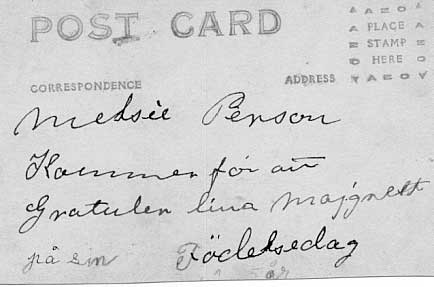 POST CARD
AZO
PLACE
STAMP
HERE
AZO
CORRESPONDENCE
ADDRESS
Medsie Person
Kommer för att
Gratulera lina majgrett
på sin Födelsedag
år